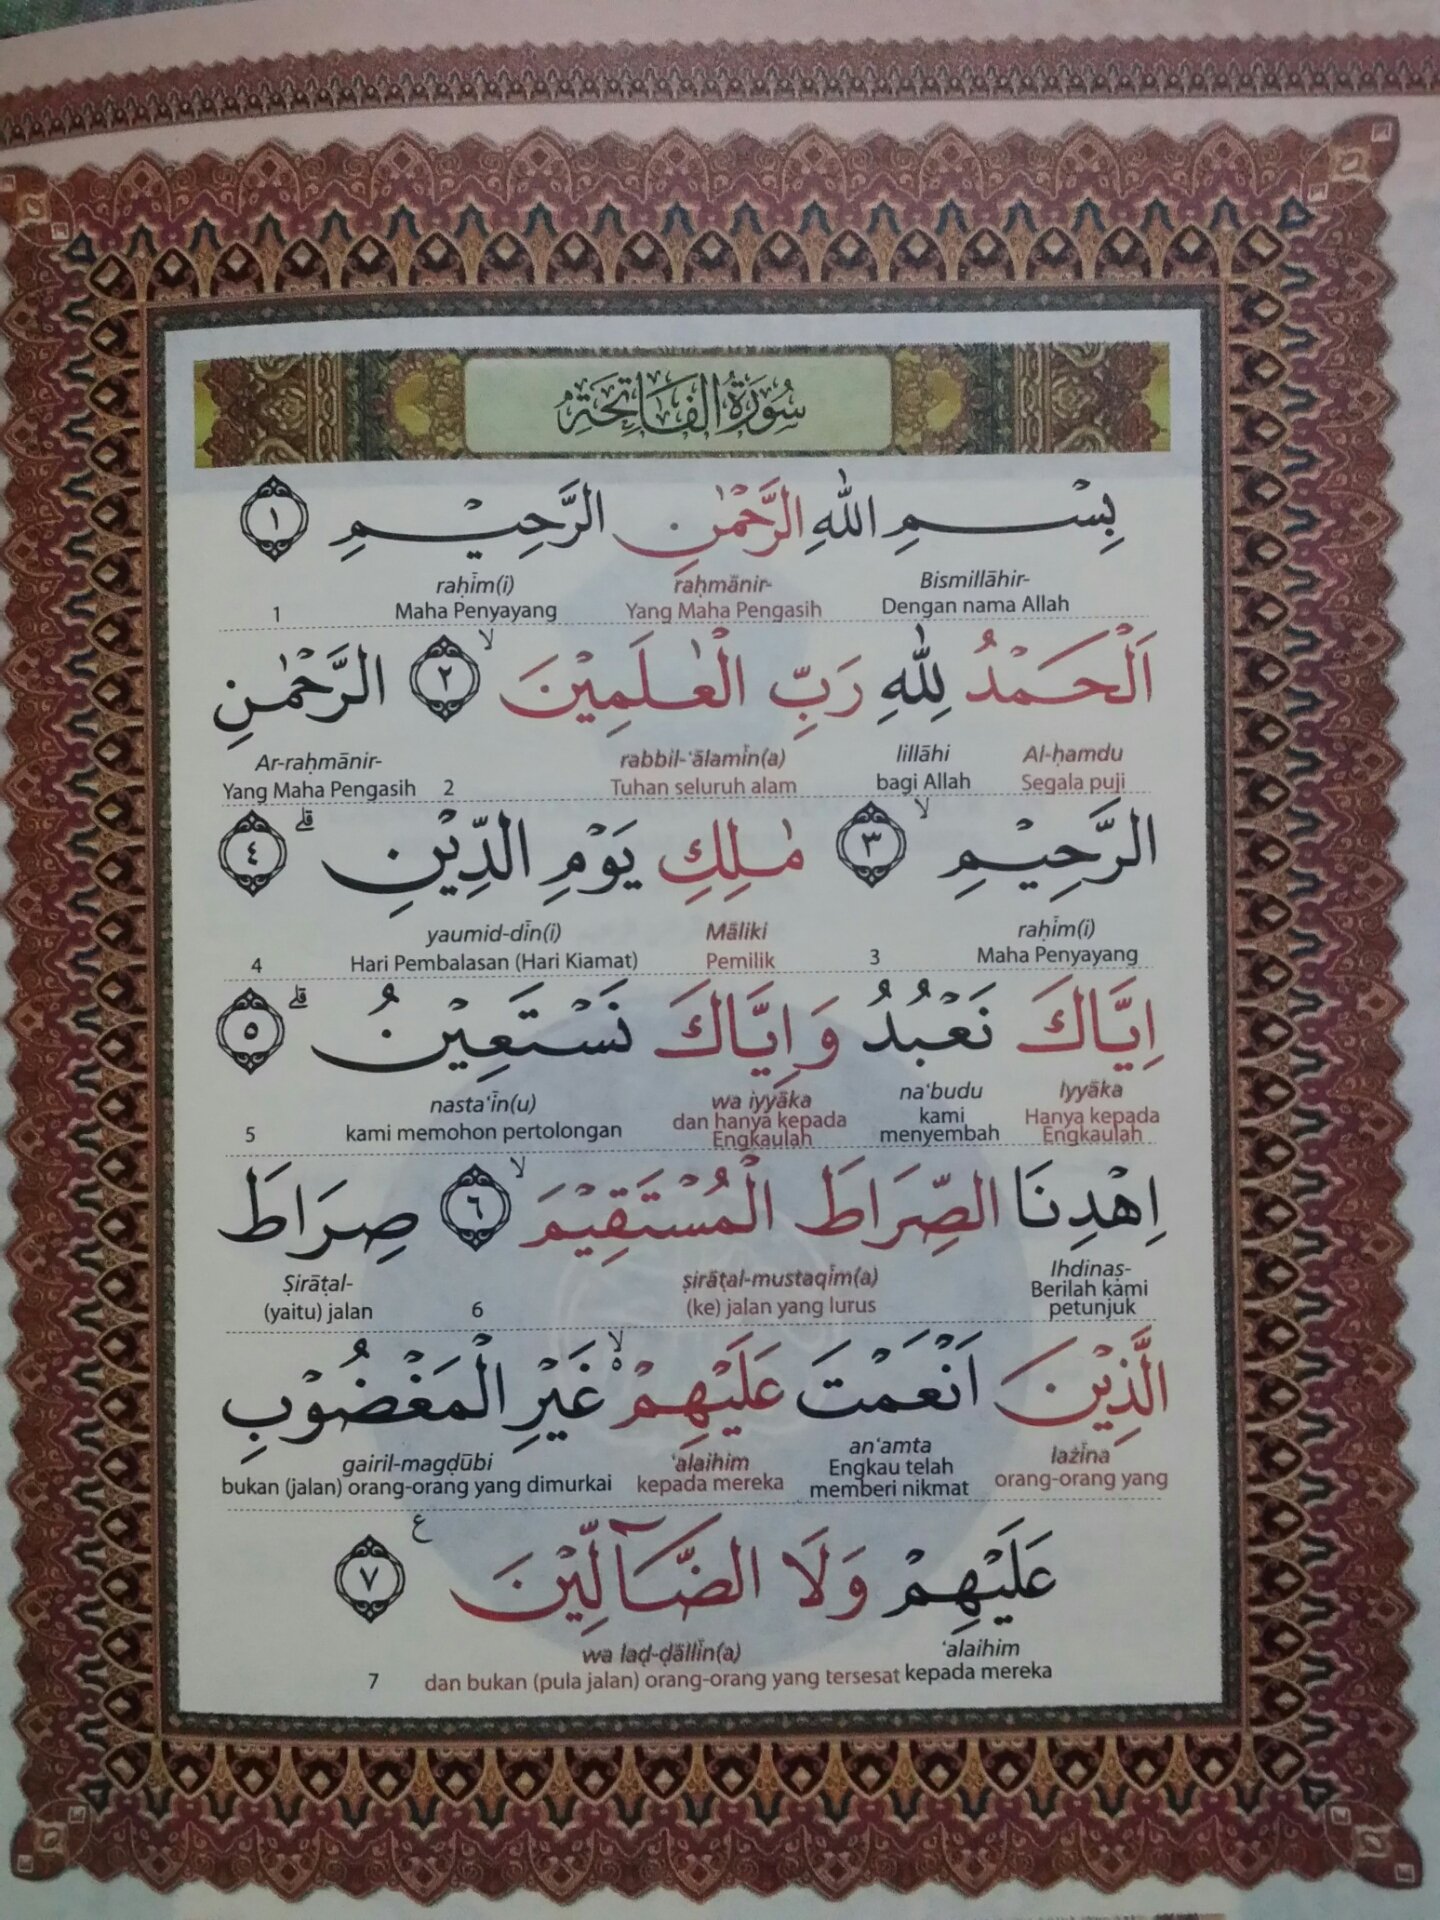 سُورَةُ الْفَاتِحَةِ
بِسْمِ اللّٰهِ الرَّحْمٰنِ الرَّحِيْمِ ١
Bismillāhir- raḥmānir- raḥīm(i)
Dengan nama Allah Yang Maha Pengasih Maha Penyayang 1
اَلْحَمْدُ لِلّٰهِ رَبِّ الْعٰلَمِيْنَ ۙ ٢ الرَّحْمٰنِ
Al-ḥamdu lillāhi rabbil-‘ālamīn(a) Ar-raḥmānir-
Segala puji bagi Allah Tuhan seluruh alam 2 Yang Maha Pengasih
الرَّحِيْمِ ۙ ٣ مٰلِكِ يَوْمِ الدِّيْنِ ۗ ٤
raḥīm(i) Māliki yaumid-dīn(i)
Maha Penyayang 3 Pemilik Hari Pembalasan (Hari Kiamat) 4
اِيَّاكَ نَعْبُدُ وَاِيَّاكَ نَسْتَعِيْنُ ۗ ٥
Iyyāka na‘budu wa iyyāka nasta‘īn(u)
Hanya kepada Engkaulah kami menyembah dan hanya kepada Engkaulah kami memohon pertolongan 5
اِهْدِنَا الصِّرَاطَ الْمُسْتَقِيْمَ ۙ ٦ صِرَاطَ
Ihdinaṣ- ṣirāṭal-mustaqīm(a) Ṣirāṭal-
Berilah kami petunjuk (ke) jalan yang lurus 6 (yaitu) jalan
الَّذِيْنَ اَنْعَمْتَ عَلَيْهِمْ ۙ غَيْرِ الْمَغْضُوْبِ
lażīna an‘amta ‘alaihim gairil-magḍūbi
orang-orang yang Engkau telah memberi nikmat kepada mereka bukan (jalan) orang-orang yang dimurkai
عَلَيْهِمْ وَلَا الضَّاۤلِّيْنَ ع ٧
‘alaihim wa laḍ-ḍāllīn(a)
kepada mereka dan bukan (pula jalan) orang-orang yang tersesat 7